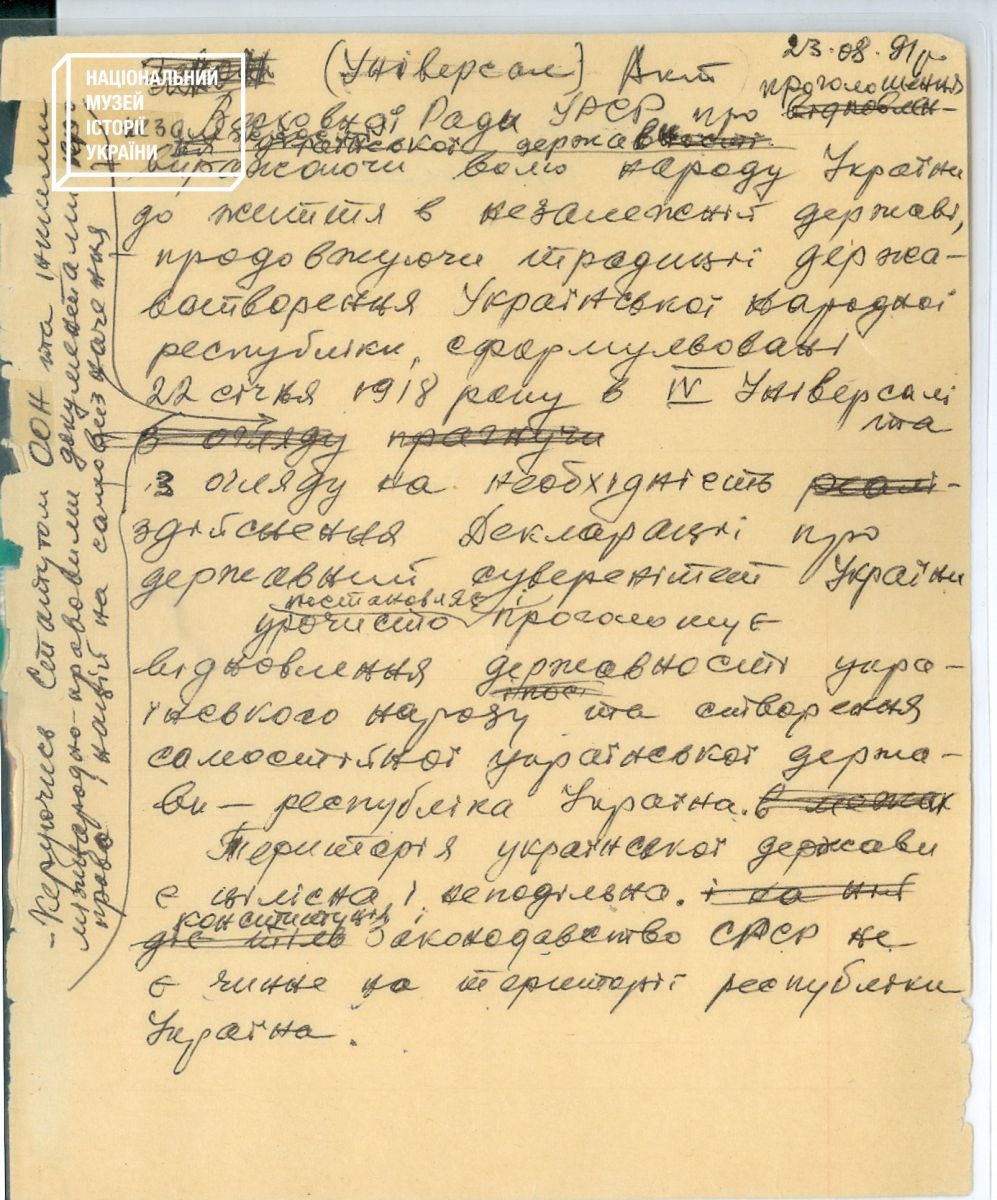 НАЦІОНАЛЬНИЙ
МУЗЕЙ
ІСТОРІЇ
УКРАЇНИ
23.08.91 р.
(Універсал) Акт проголошення
Верховної Ради УРСР про відновлен-
ня української державності.
Виражаючи волю народу України
до життя в незалежній державі,
продовжуючи традиції держа-
вотворення Української народної
республіки, сформульовані
22 січня 1918 року в IV Універсалі
та
з огляду прагнучи
з огляду на необхідність реалі-
здійснення Декларації про
державний суверенітет України
постановляє і
урочисто проголошує
відновлення державності укра-
їнського народу та створення
самостійної української держа-
ви — республіка Україна. в межах
Територія української держави
є цілісна і неподільна. і на ній
конституція і
діє тільк Законодавство СРСР не
є чинне на території республіки
Україна.
- Керуючись Статутом ООН та іншими
міжнародно-правовими документами про
право націй на самовизначення